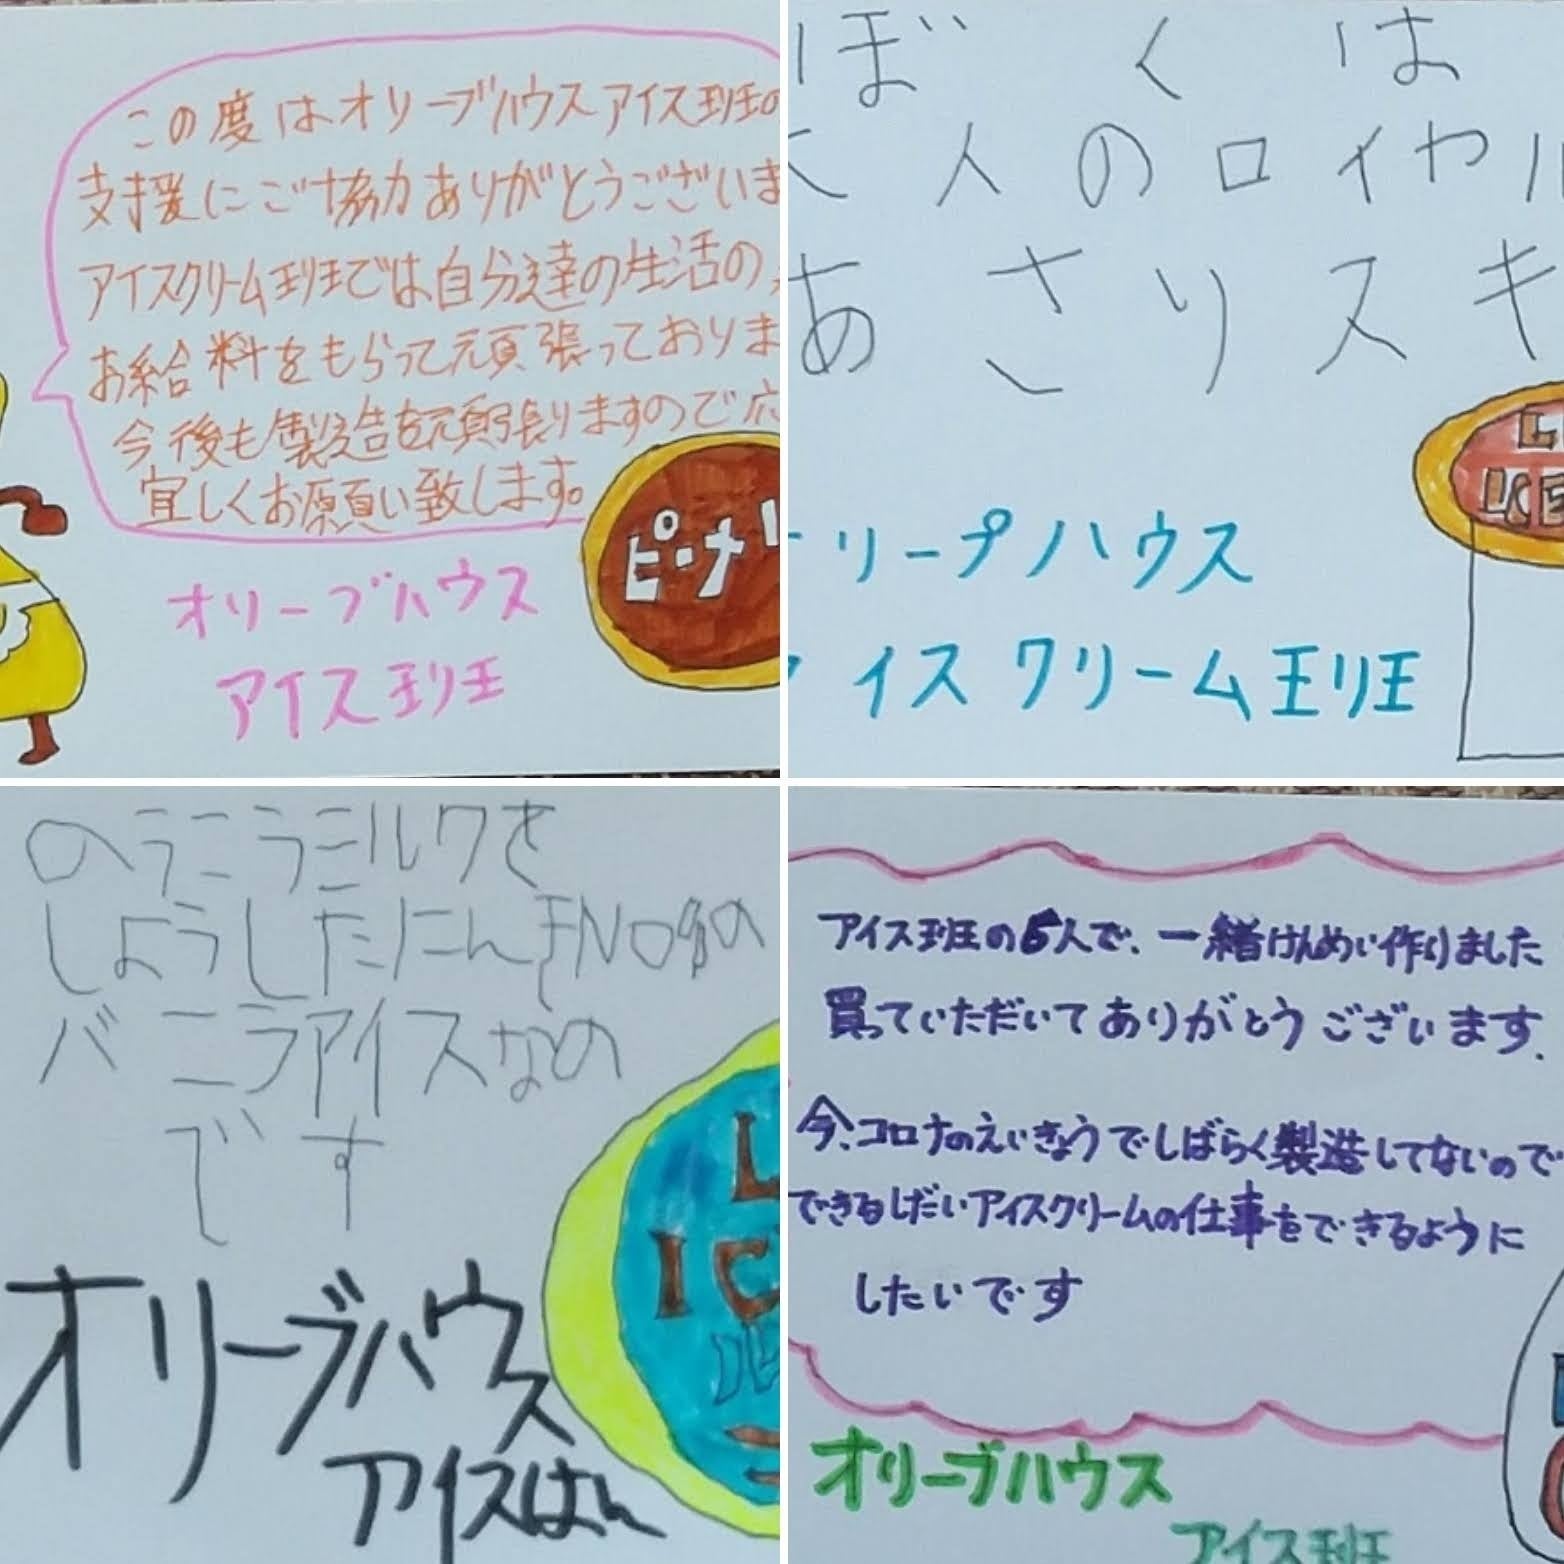 この度はオリーブハウスアイス班の
支援にご協力ありがとうございま
アイスクリーム班では自分達の生活の
お給料をもらって頑張っておりま
今後も製造を頑張りますので応
宜しくお願い致します。
ピーナ
オリーブハウス
アイス班
ぼくは
大人のロイヤル
あさりスキ
リーブハウス
アイスクリーム班
のうこうミルクを
しようしたにんきNO1の
バニラアイスなの
です
L
IC
オリーブハウス
アイスはん
アイス班の5人で、一緒けんめい作りました
買っていただいてありがとうございます.
今、コロナのえいきょうでしばらく製造してないので
できるしだいアイスクリームの仕事をできるように
したいです
オリーブハウス
アイス班